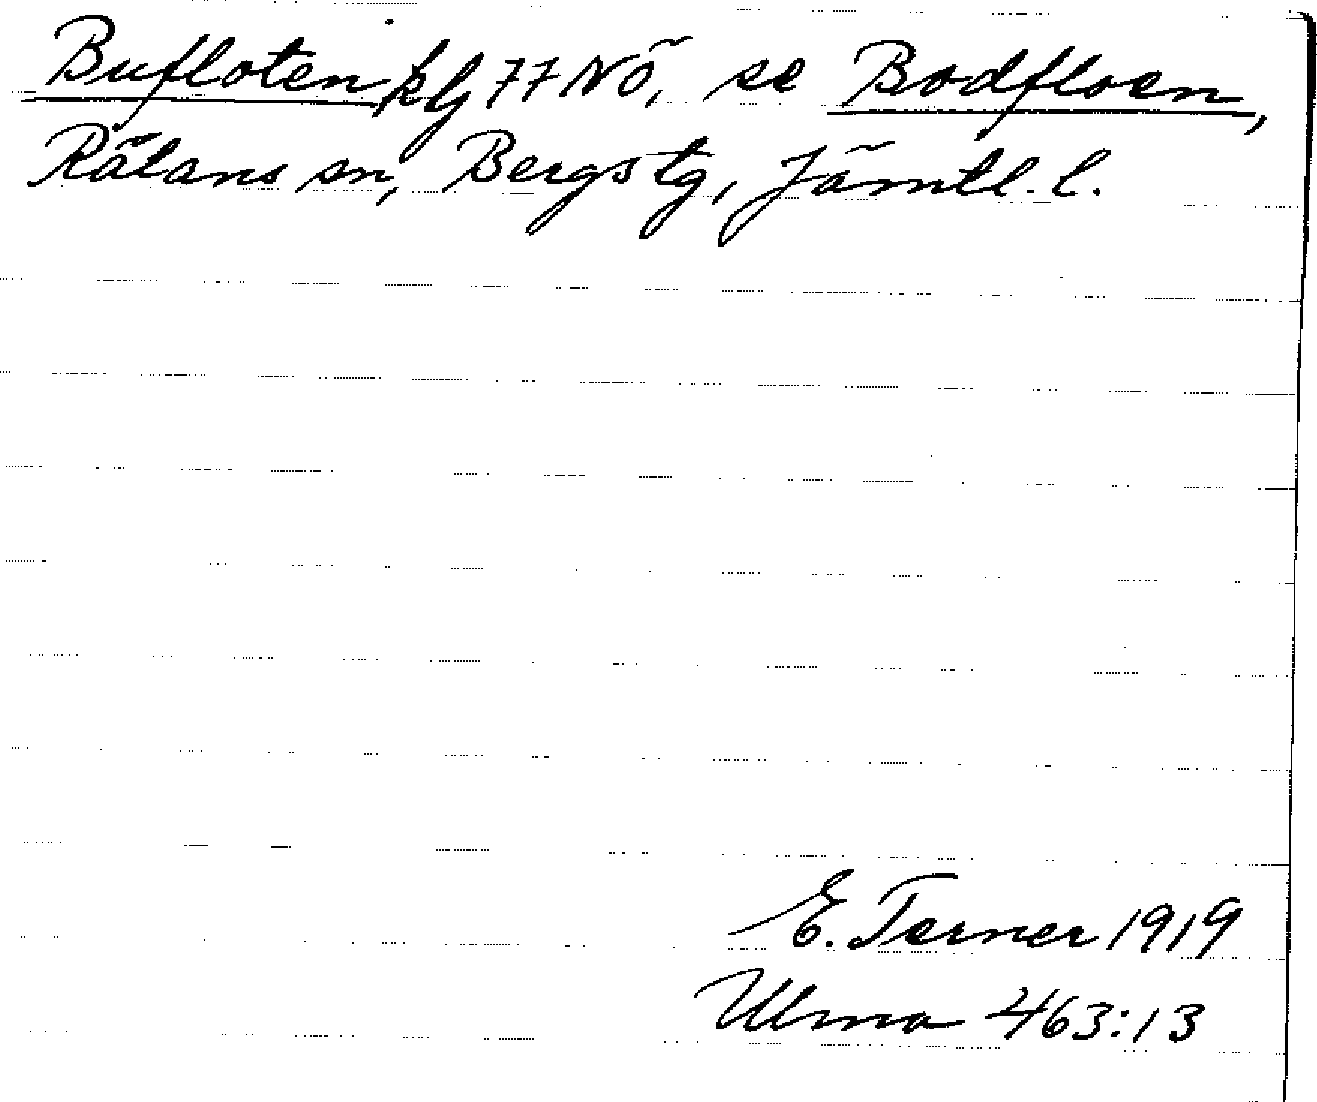 Bufloten kbl 77 NÖ, se Bodfloen,
Rätans sn, Bergs tg, Jämtl. l.
E. Terner 1919
Ulma 463:13